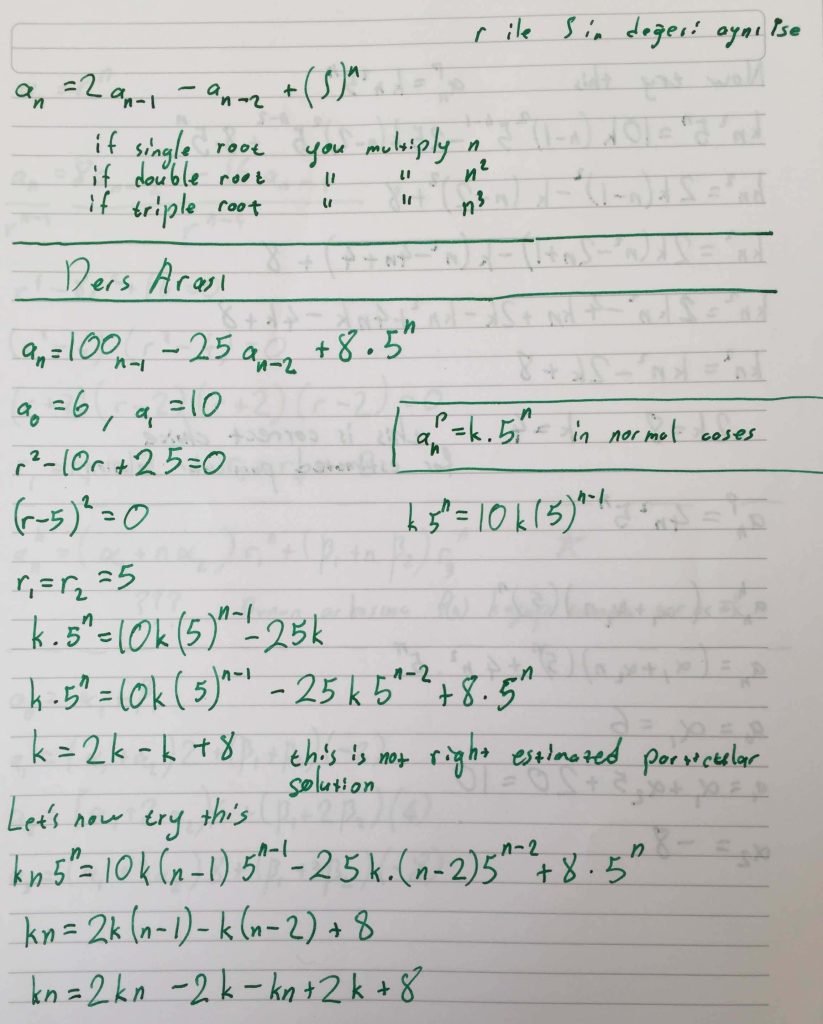 r ile S in değeri aynı ise
aₙ = 2 aₙ₋₁ - aₙ₋₂ + (S)ⁿ
if single root you multiply n
if double root " " n²
if triple root " " n³
Ders Arası
aₙ = 100ₙ₋₁ - 25 aₙ₋₂ + 8 . 5ⁿ
a₀ = 6 , a₁ = 10
r² - 10r + 25 = 0
aₙᵖ = k . 5ⁿ in normal cases
(r-5)² = 0
k 5ⁿ = 10 k (5)ⁿ⁻¹
r₁ = r₂ = 5
k . 5ⁿ = 10k (5)ⁿ⁻¹ - 25k
k . 5ⁿ = 10k (5)ⁿ⁻¹ - 25 k 5ⁿ⁻² + 8 . 5ⁿ
k = 2k - k + 8 this is not right estimated particular
solution
Let's now try this
kn 5ⁿ = 10k (n-1) 5ⁿ⁻¹ - 25k . (n-2) 5ⁿ⁻² + 8 . 5ⁿ
kn = 2k (n-1) - k (n-2) + 8
kn = 2kn - 2k - kn + 2k + 8